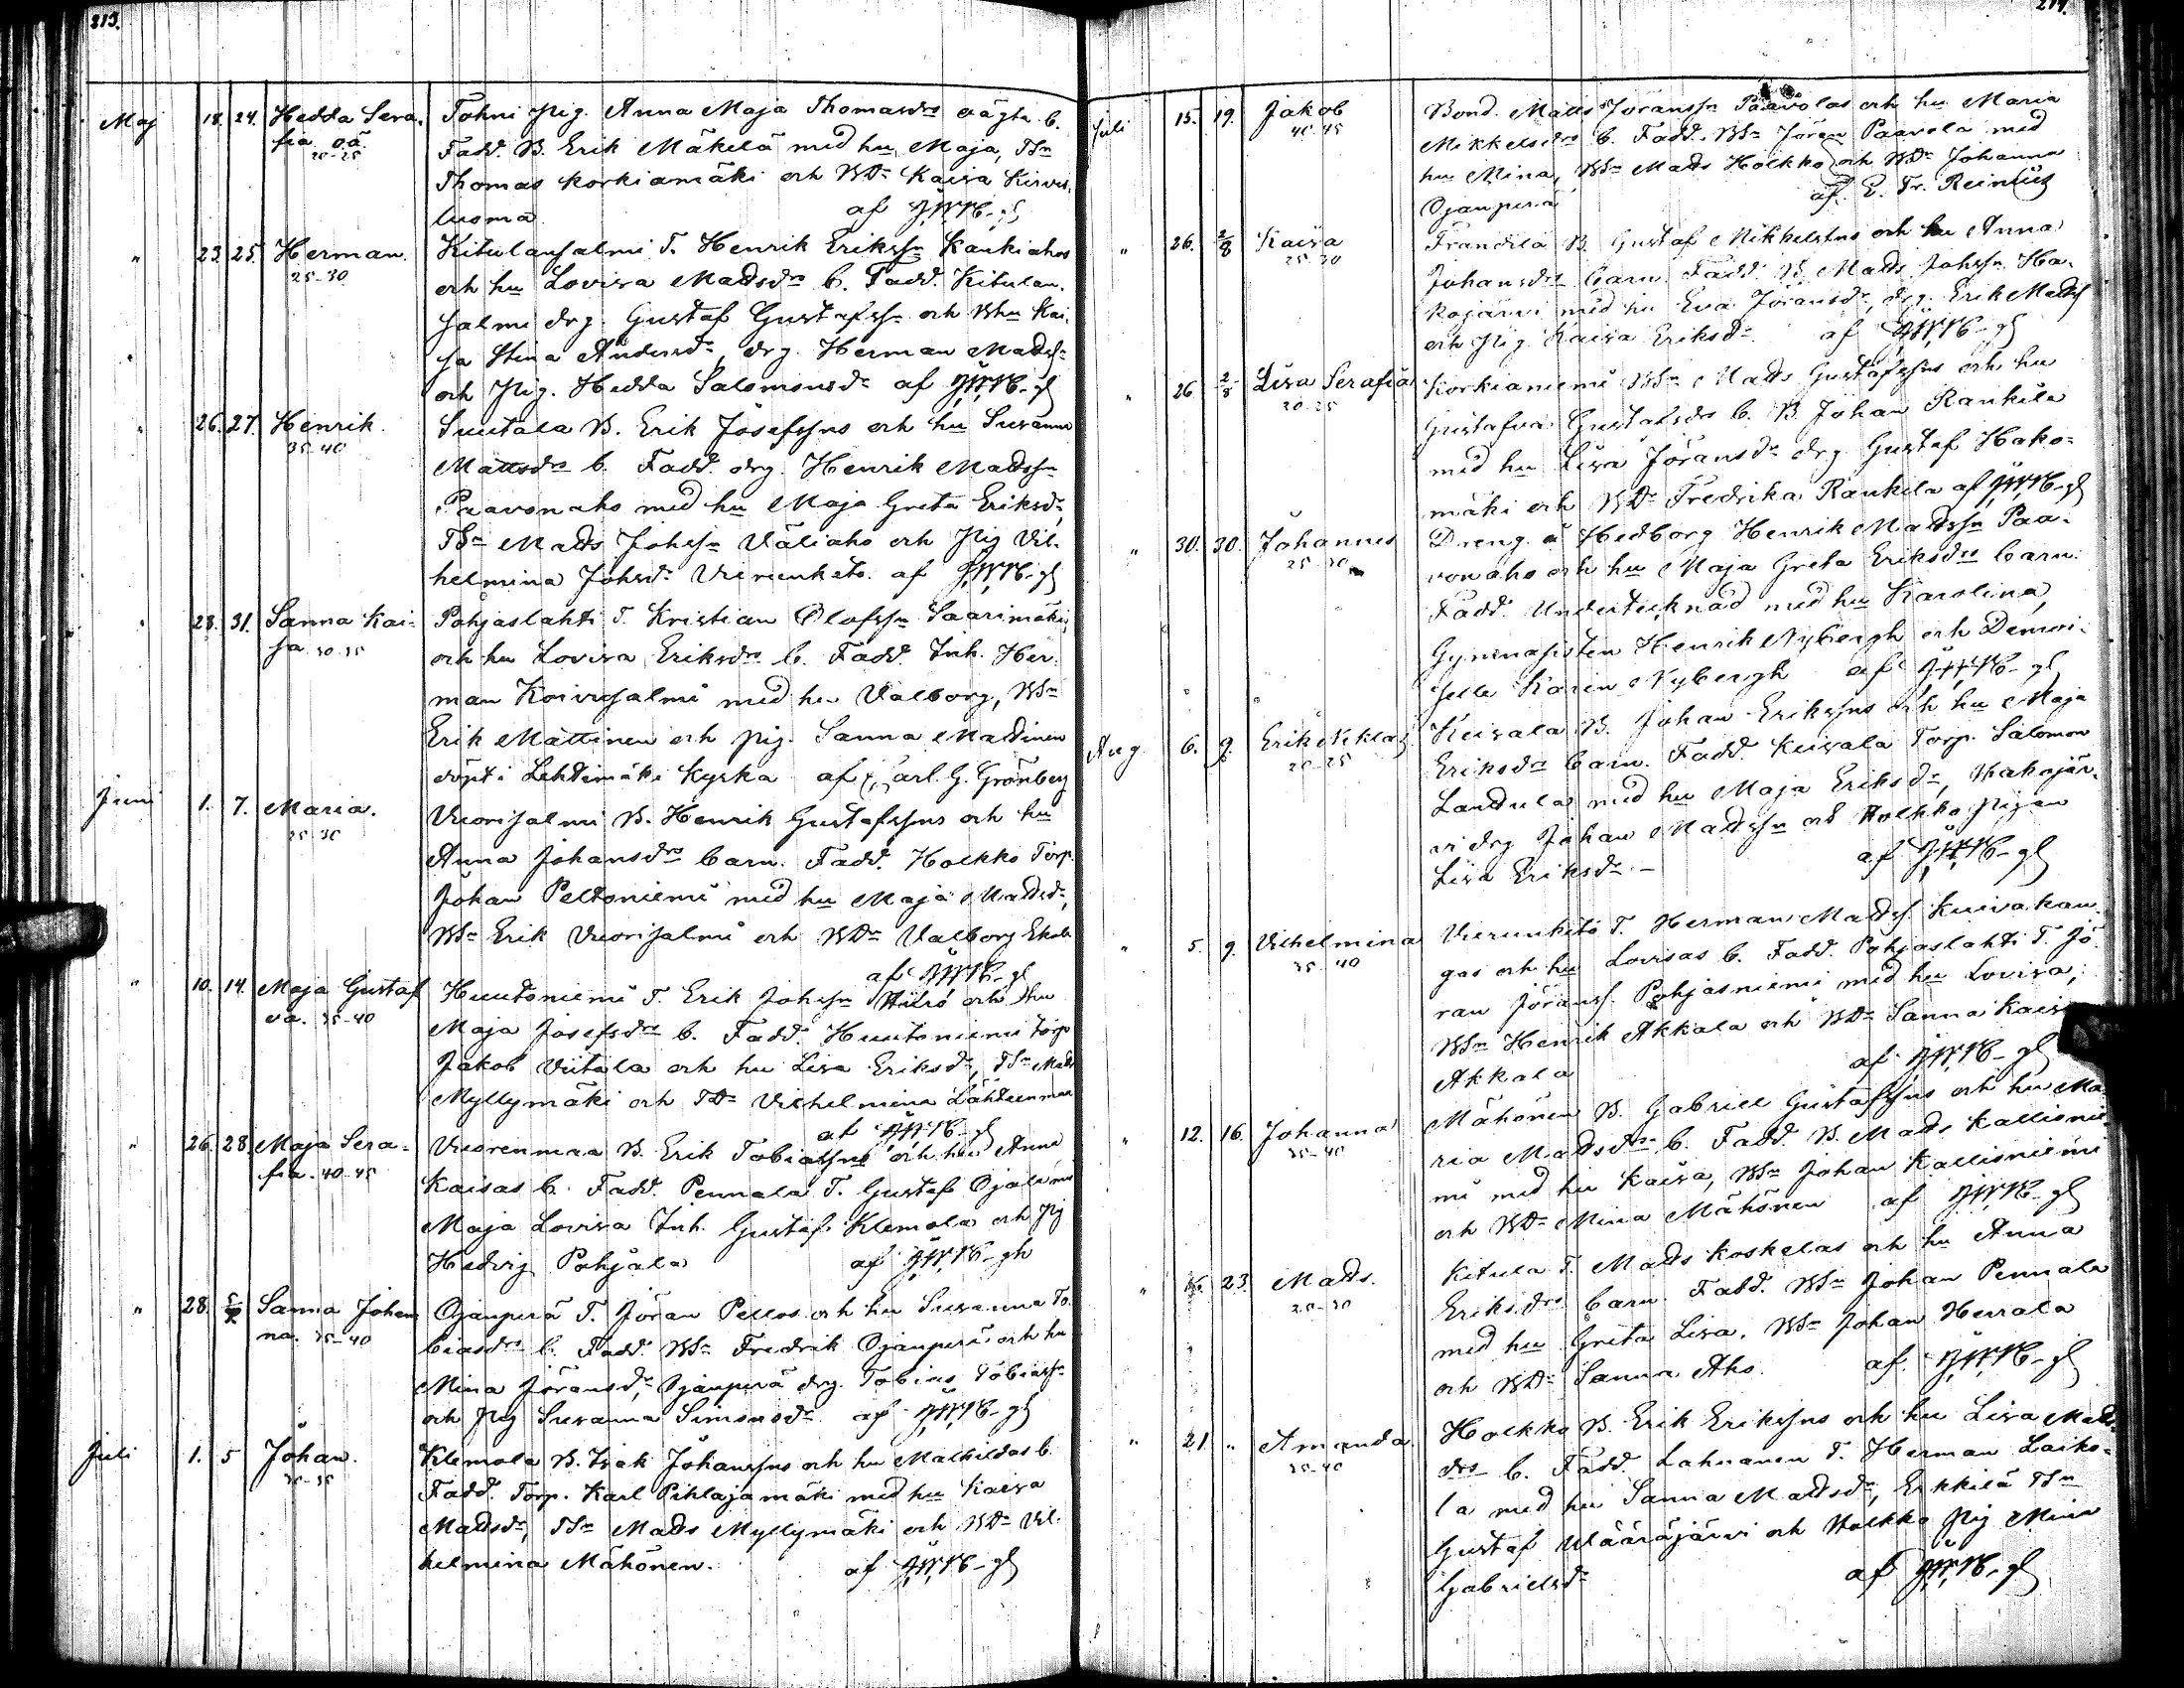 213.
Maj 18. 24. Hedda Sera- Tohni Pig. Anna Maja Thomasdrs oägta b.
fia oä. Fadd. B. Erik Mäkelä med hu Maja, TSn
20-25
Thomas Korkiamäki och BDr Kaisa Kirves
luoma af
" 23. 25. Herman. Kitulansalmi T. Henrik Erikssn Kaukiahos
25-30 och hu Lovisa Madsdrs b. Fadd. Kitulan
salmi drg. Gustaf Gustafssn och Bhu Kai
sa Stina Andersdr, drg. Herman Madss
och Pig. Hedda Salomonsdr af
" 26. 27. Henrik. Suutala B. Erik Josefssns och hu Susanna
35-40 Mattsdrs b. Fadd. drg. Henrik Madssn
Paavonaho med hu Maja Greta Eriksdr,
TSn Mads Johssn Väliaho och Pig Vil-
helmina Johsdr Vierunketo. af
" 28. 31. Sanna Kai- Pohjaslahti T. Kristian Olofssn Saarimäkis
sa 30-35 och hu Lovisa Eriksdrs b. Fadd. Inh. Her-
man Koivusalmi med hu Valborg, BSn
Erik Mattinen och pig. Sanna Mattinen
döpt i Lehtimäki kyrka af Carl G. Grönberg
Juni 1. 7. Maria. Vuorisalmi B. Henrik Gustafssns och hu
25-30 Anna Johansdrs barn. Fadd. Holkko Torp.
Johan Peltoniemi med hu Maja Madsdr,
BSn Erik Vuorisalmi och BDr Valborg Ekola
af
" 10. 14. Maja Gustaf Huutoniemi T. Erik Johssn och hu
va. 35-40 Maja Josefsdrs b. Fadd. Huutoniemi Torp
Jakob Viitala och hu Lisa Eriksdr, TSn Mads
Myllymäki och TDr Vilhelmina Lähteenmaa
af
" 26. 28. Maja Sera- Vuorenmaa B. Erik Tobiassns och hu Anna
fia. 40-45 Kaisas b. Fadd. Pennala T. Gustaf Ojala m
Maja Lovisa Inh. Gustaf Klemola och Pig
Hedvig Pohjala af
" 28. Sanna Johan Ojanperä T. Jöran Pellos och hu Susanna To-
na. 35-40 biasdrs b. Fadd. BSn Fredrik Ojanperä och hu
Mina Jöransdr, Ojanperä drg. Tobias Tobiass
och Pig Susanna Simonsdr af
Juli 1. 5 Johan. Klemola B. Isak Johanssns och hu Mathildas b.
30-35 Fadd. Torp. Karl Pihlajamäki med hu Kaisa
Madsdr, TSn Mads Myllymäki och BDr Vil-
helmina Mähönen. af
214.
Juli 15. 19. Jakob Bond. Matts Joranssn Paavolas och hu Maria
40-45 Mikkelsdrs b. Fadd. BSn Jöran Paavola med
hu Mina, BSn Mads Holkko och BDr Johanna
Ojanperä af E. Fr. Reinius
" 26. 2/8 Kaisa Frändilä B. Gustaf Mikkelssns och hu Anna
25-30 Johansdrs barn. Fadd. B. Mads Johssn Ha-
kojärvi med hu Eva Jöransdr, drg. Erik Madss
och Pig Kaisa Eriksdr af
" 26 2/8 Lisa Serafia Korkianiemi BSn Mads Gustafssns och hu
20-25 Gustafva Gustafsdrs b. B. Johan Rankila
med hu Lisa Jöransdr drg Gustaf Hako-
mäki och BDr Fredrika Rankila af
" 30. 30. Johannes Dreng å Hedborg Henrik Madssn Paa-
25-30 vonaho och hu Maja Greta Eriksdrs barn
Fadd. Undertecknad med hu Karolina,
Gymnasisten Henrik Nybergh och Demoi-
selle Karin Nybergh af
Aug. 6. 9. Erik Niklas Keisala B. Johan Erikssns och hu Maja
20-25 Eriksdrs barn. Fadd. Keisala Torp. Salomon
Landula med hu Maja Eriksdr, Hakojär-
vi drg Johan Madssn och Holkko Pigan
Lisa Eriksdr. - af
" 5. 9. Vilhelmina Vierunketo T. Herman Madss. Kuivakan-
35-40 gas och hu Lovisas b. Fadd. Pohjaslahti T. Jö-
ran Jöranss. Pohjasniemi med hu Lovisa,
BSn Henrik Akkala och BDr Sanna Kaisa
Akkala af
" 12. 16. Johanna Mähönen B. Gabriel Gustafssns och hu Ma-
35-40 ria Madsdrs b. Fadd. B. Mads Kallionie-
mi med hu Kaisa, BSn Johan Kallioniemi
och BDr Mina Mähönen af
" 23. Mads. Kitula T. Mads Koskelas och hu Anna
Eriksdrs barn. Fadd. BSn Johan Pennala
med hu Greta Lisa, BSn Johan Herrala
och BDr Sanna Aho. af
" 21. " Amanda. Holkko B. Erik Erikssns och hu Lisa Mads-
35-40 drs b. Fadd. Lahnanen T. Herman Laiko-
la med hu Sanna Madsdr, Erkkilä TSn
Gustaf Wääräjärvi och Holkko Pig Mina
Gabrielsdr af